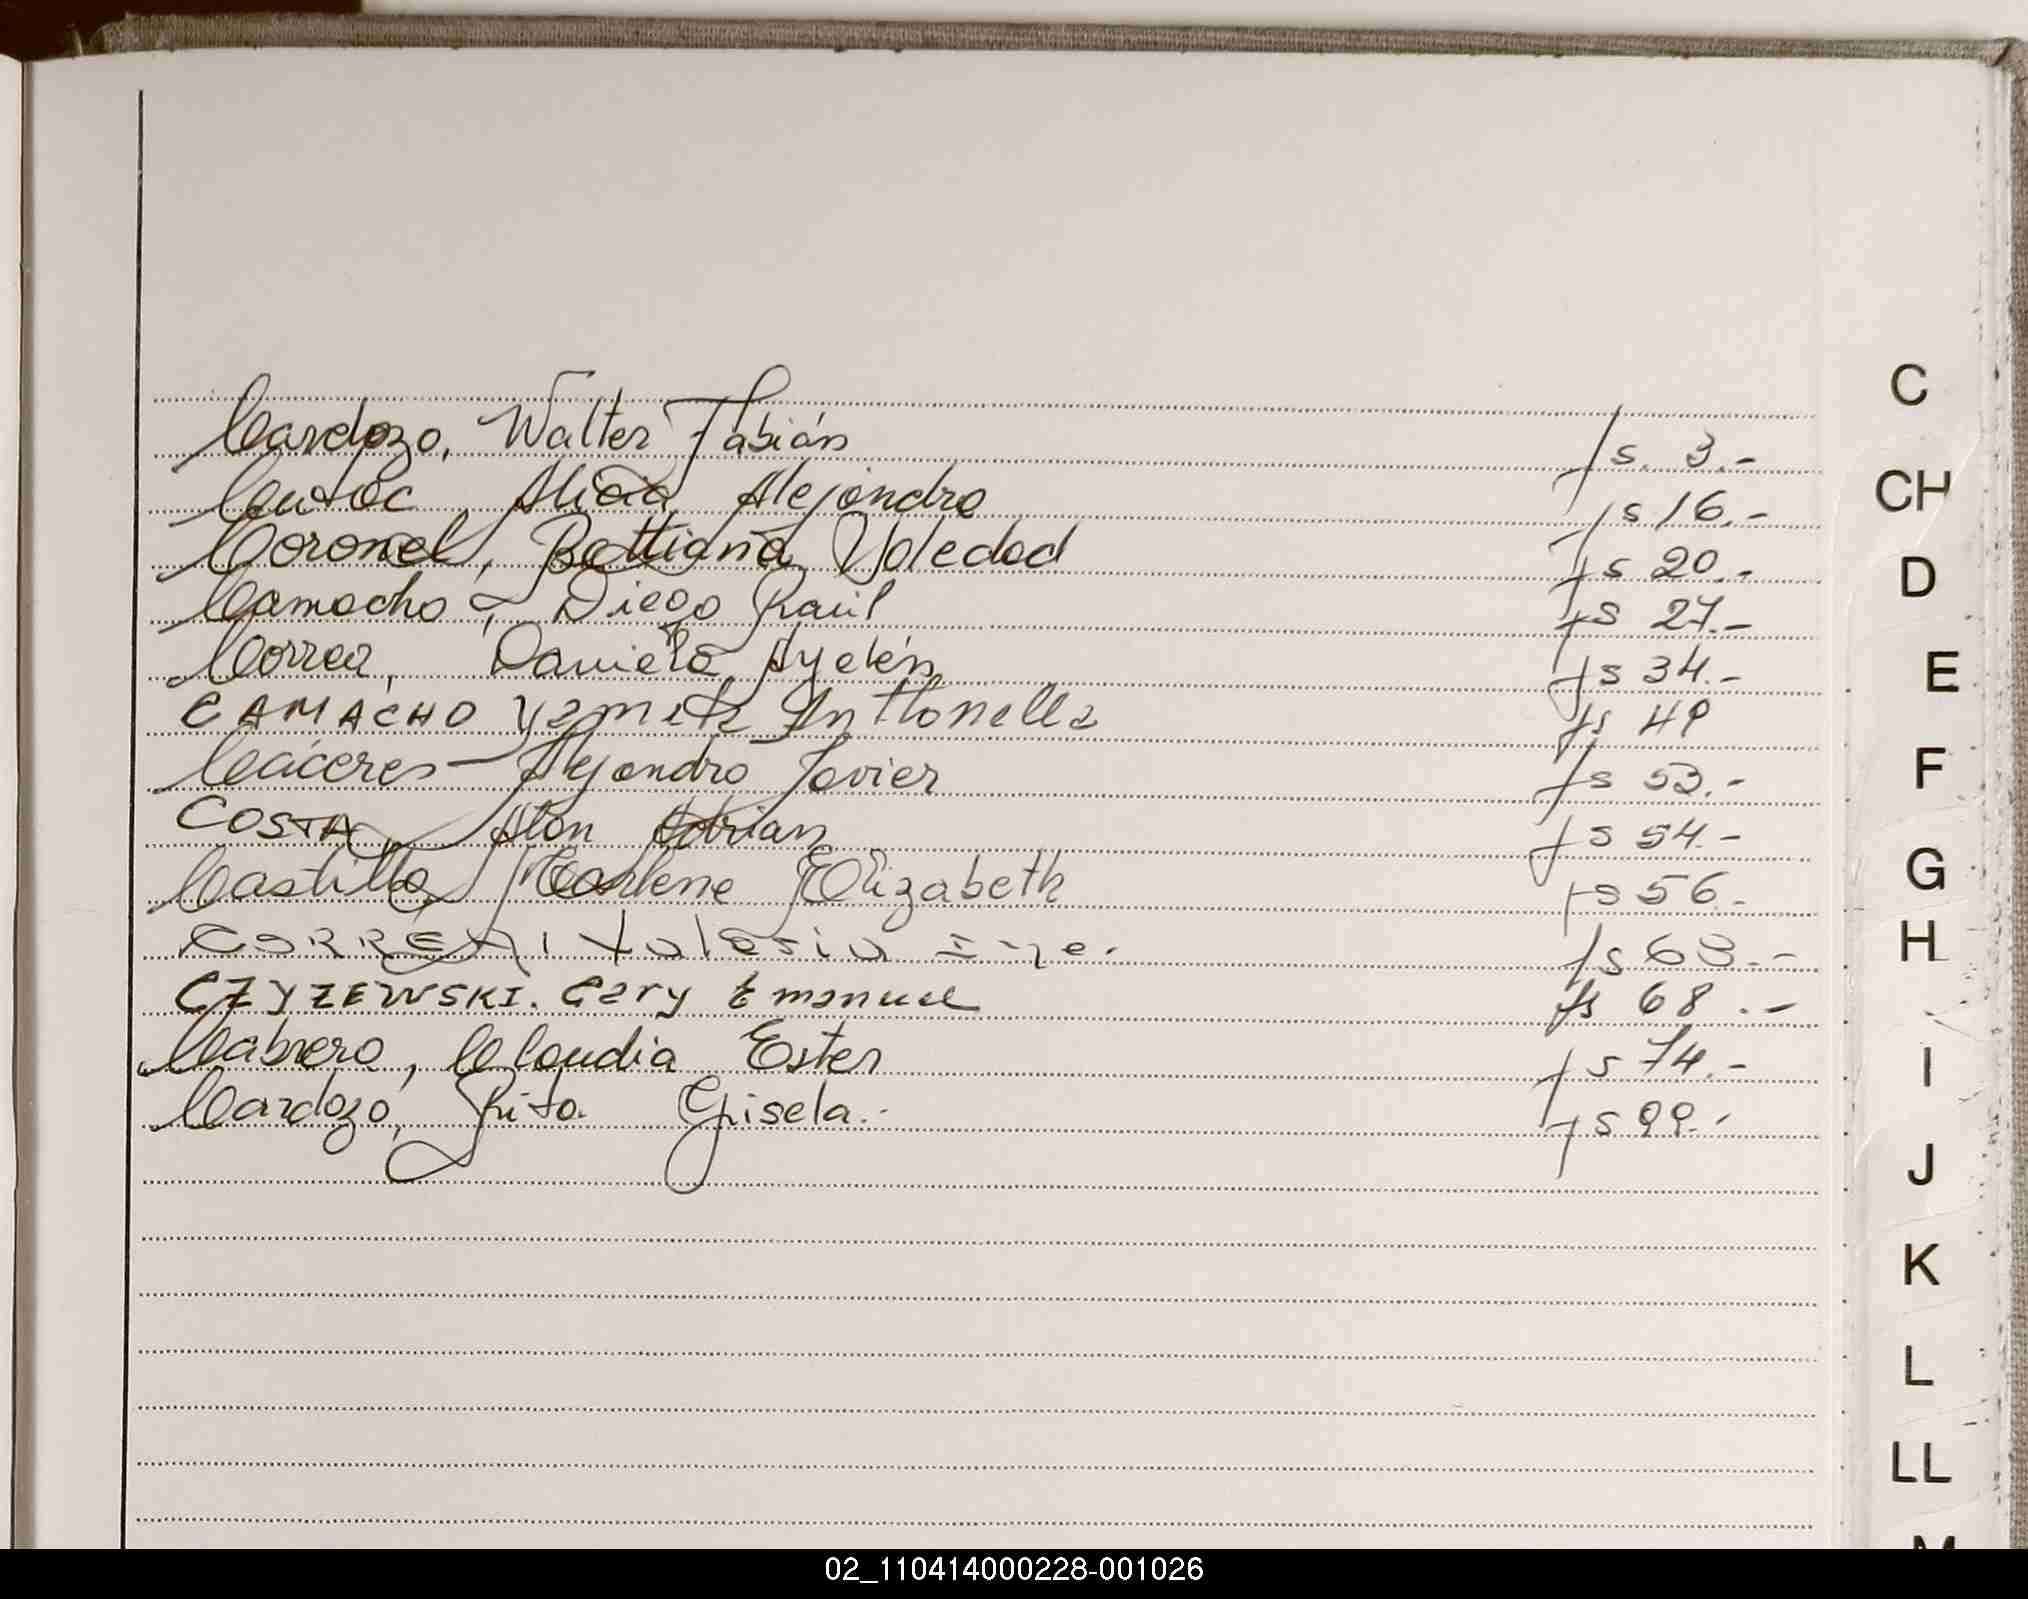 Cardozo, Walter Fabián fs. 3.-
Alicia Alejandra fs 16.-
Coronel, Bettiana Soledad fs 20.-
Camacho, Diego Raúl fs 27.-
Correa, Daniela Ayelén fs 34.-
CAMACHO Antonella fs 49
Cáceres - Alejandro Javier fs 53.-
COSTA, Alan Adrian fs 54.-
Castillo, Marlene Elizabeth fs 56.-
CORREA, Valeria fs 63.-
CZYZEWSKI. Gary Emanuel fs 68.-
Cabrera, Claudia Ester fs 74.-
Cardozo, Rita Gisela.- fs 99.-
C
CH
D
E
F
G
H
I
J
K
L
LL
M
02_110414000228-001026